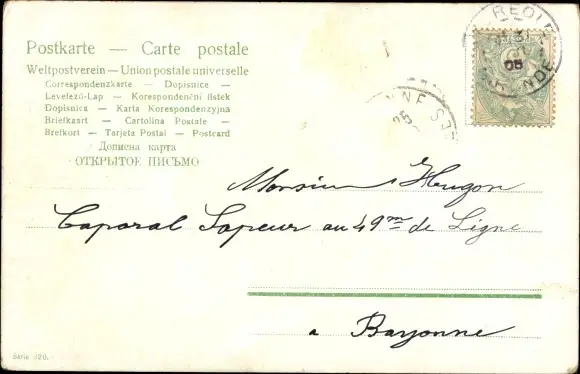 Postkarte — Carte postale
Weltpostverein — Union postale universelle
Correspondenzkarte — Dopisnice —
Levelező-Lap — Korespondenční lístek
Dopisnica — Karta Korespondencyjna
Briefkaart — Cartolina Postale —
Brefkort — Tarjeta Postal — Postcard
Дописна карта
ОТКРЫТОЕ ПИСЬМО
REOLE
05
GIRONDE
NNE S
25
Monsieur Hugon
Caporal Sapeur au 49me de Ligne
a Bayonne
Serie 320.